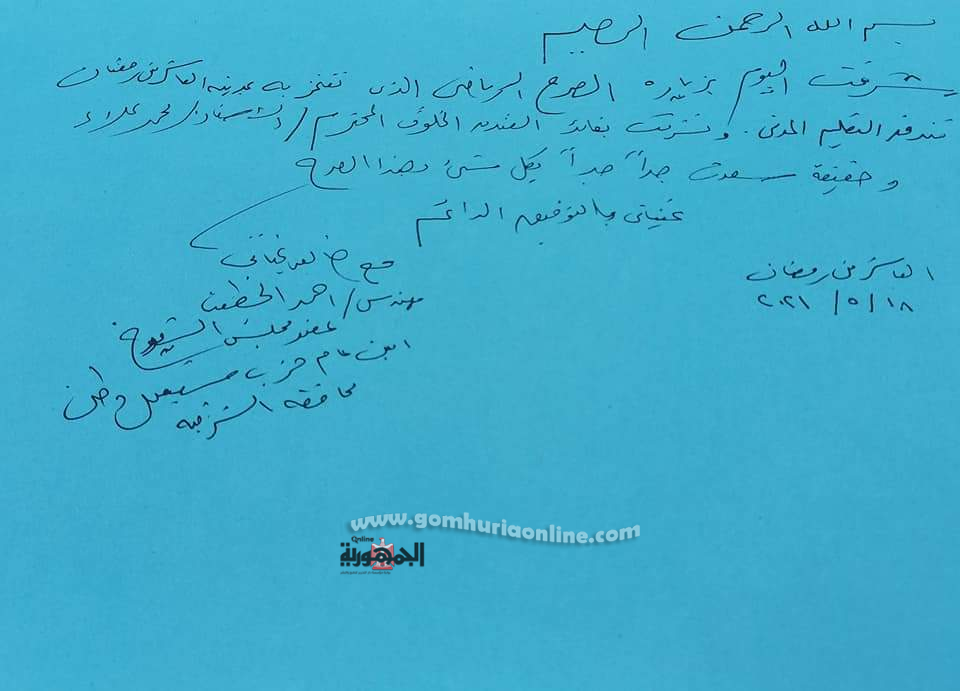 بسم الله الرحمن الرحيم
تشرفت اليوم بزيارة الصرح الرياضى الذى تفتخر به مدينة العاشر من رمضان
فندق التعليم المدنى. وتشرفت بقائد الفندق الخلوق المحترم / الاستاذ / محمد علاء
وحقيقة سعدت جداً جداً بكل شئ فى هذا الصرح
تمنياتى بالتوفيق الدائم
مع خالص تحياتى
العاشر من رمضان
مهندس / احمد
١٨ / ٥ / ٢٠٢١
عضو مجلس الشيوخ
امين عام حزب مستقبل وطن
محافظة الشرقية
www.gomhuriaonline.com
Online
الجمهورية